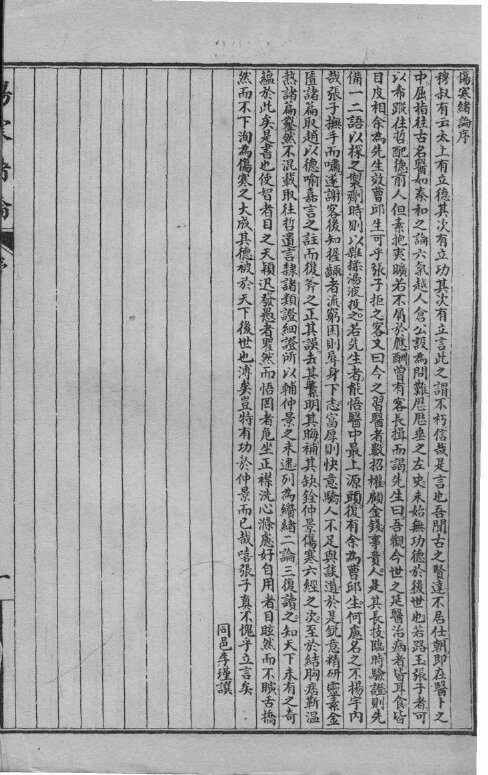 傷寒緒論序
穆叔有云太上有立德其次有立功其次有立言此之謂不朽信哉是言也吾聞古之賢達不居仕朝即在醫卜之
中屈指往古名醫如秦和之論六氣越人倉公設為問難厯厯垂之左史未始無功德於後世也若路玉張子者可
以希蹤往哲配德前人但素抱爽曠若不屑於應酬曾有客長揖而謁先生曰吾觀今世之延醫治病者皆耳食皆
目皮相余為先生效曹邱生可乎張子拒之客又曰今之習醫者數招權顧金錢事貴人是其長技臨時驗證則先
備一二語以探之製劑時則以雜揉湯液投之若先生者能悟醫中最上源頭復有余為曹邱生何處名之不揚宇內
哉張子撫手而嘯遂謝客後知握齱者流窮困則辱身下志富厚則快意驕人不足與談道於是銳意精研靈素金
匱諸篇取趙以德喻嘉言之註而復斧之正其誤去其纇明其晦補其缺銓仲景傷寒六經之次至於結胸痞新溫
熱諸篇鑿然不混載取往哲遺言隸諸類證細證所以輔仲景之未逮列為纘緒二論三復讀之知天下未有之奇
蘊於此矣是書也使智者目之天穎迟發愚者瞿然而悟罔者危坐正襟洗心滌慮好自用者目眩然而不瞚舌撟
然而不下洵為傷寒之大成其德被於天下後世也溥矣豈特有功於仲景而已哉嘻張子真不愧乎立言矣
同邑李瑾譔
傷寒緒論
序
一